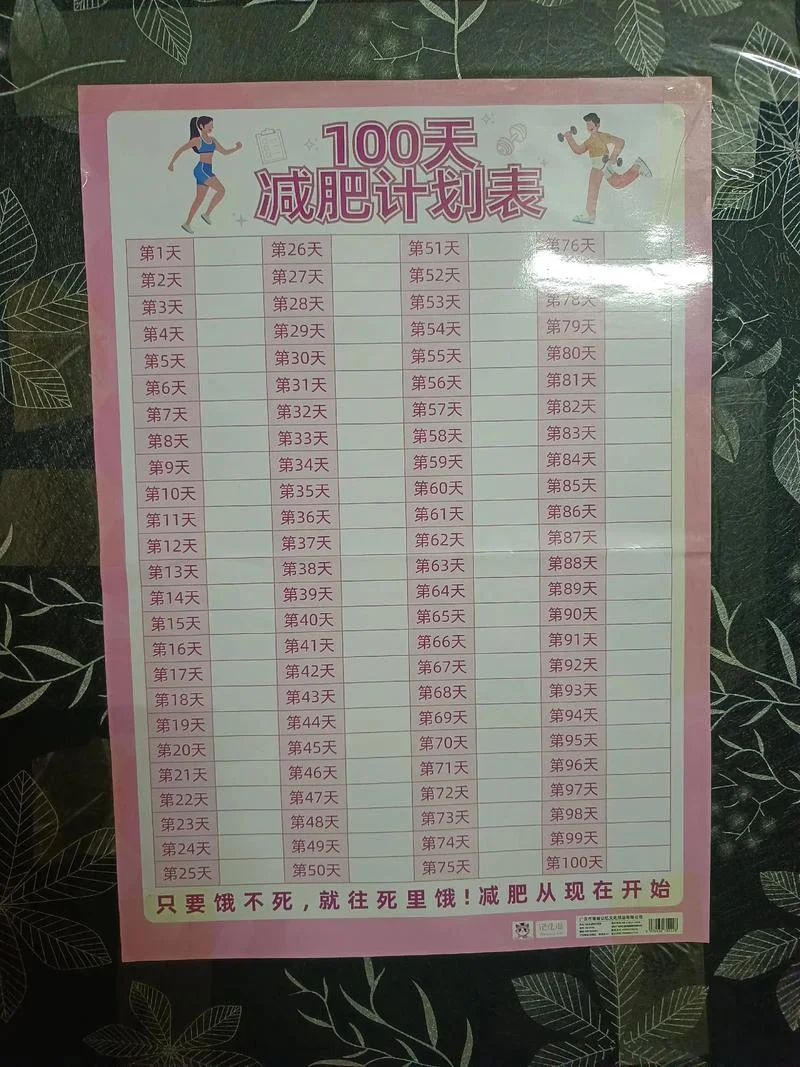 100天
减肥计划表
第1天 第26天 第51天 第76天
第2天 第27天 第52天
第3天 第28天 第53天 第78天
第4天 第29天 第54天 第79天
第5天 第30天 第55天 第80天
第6天 第31天 第56天 第81天
第7天 第32天 第57天 第82天
第8天 第33天 第58天 第83天
第9天 第34天 第59天 第84天
第10天 第35天 第60天 第85天
第11天 第36天 第61天 第86天
第12天 第37天 第62天 第87天
第13天 第38天 第63天 第88天
第14天 第39天 第64天 第89天
第15天 第40天 第65天 第90天
第16天 第41天 第66天 第91天
第17天 第42天 第67天 第92天
第18天 第43天 第68天 第93天
第19天 第44天 第69天 第94天
第20天 第45天 第70天 第95天
第21天 第46天 第71天 第96天
第22天 第47天 第72天 第97天
第23天 第48天 第73天 第98天
第24天 第49天 第74天 第99天
第25天 第50天 第75天 第100天
只要饿不死,就往死里饿!减肥从现在开始